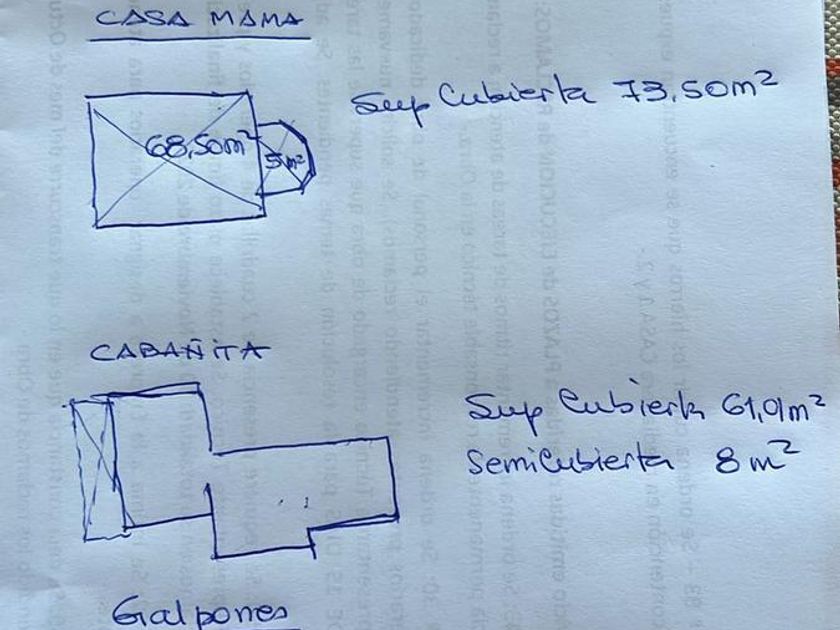 CASA MAMA
68,50m²
5m²
Sup Cubierta 73,50m²
CABAÑITA
Sup Cubierta 61,01m²
SemiCubierta 8m²
Galpones